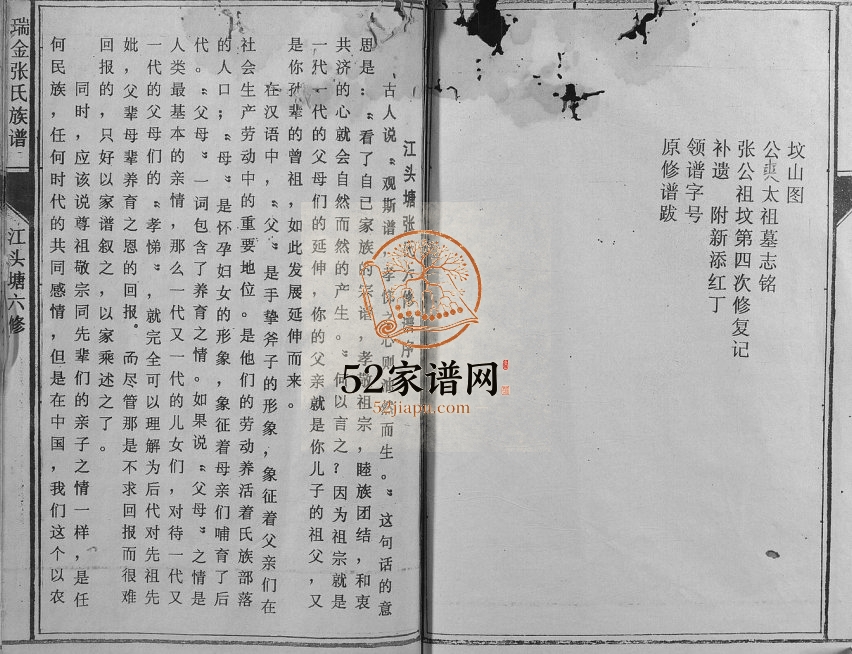 坟山图
公奭太祖墓志铭
张公祖坟第四次修复记
补遗 附新添红丁
领谱字号
原修谱跋
江头塘张氏六修谱序
古人说“观斯谱,孝悌之心则油然而生。”这句话的意
思是:“看了自已家族的宗谱,孝敬祖宗,睦族团结,和衷
共济的心就会自然而然的产生。”何以言之?因为祖宗就是
一代一代的父母们的延伸,你的父亲就是你儿子的祖父,又
是你孙辈的曾祖,如此发展延伸而来。
在汉语中,“父”是手挚斧子的形象,象征着父亲们在
社会生产劳动中的重要地位。是他们的劳动养活着氏族部落
的人口;“母”是怀孕妇女的形象,象征着母亲们哺育了后
代。“父母”一词包含了养育之情。如果说“父母”之情是
人类最基本的亲情,那么一代又一代的儿女们,对待一代又
一代的父母们的“孝悌”,就完全可以理解为后代对先祖先
妣,父辈母辈养育之恩的回报。而尽管那是不求回报而很难
回报的,只好以家谱叙之,以家乘述之了。
同时,应该说尊祖敬宗同先辈们的亲子之情一样,是任
何民族,任何时代的共同感情,但是在中国,我们这个以农
瑞金张氏族谱
江头塘六修
52家谱网
52jiapu.com